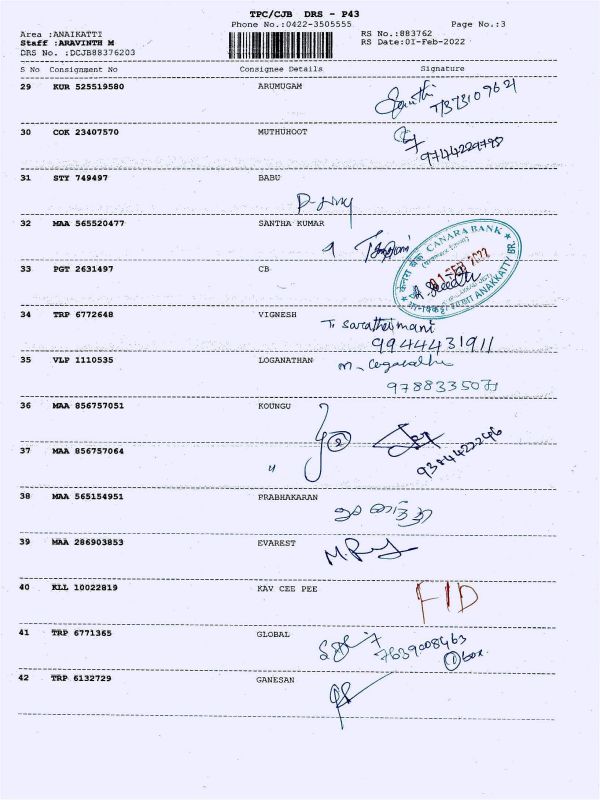 TPC/CJB DRS - P43
Phone No.:0422-3505555
Page No.:3
Area :ANAIKATTI
RS No.:883762
Staff :ARAVINTH M
RS Date:01-Feb-2022
DRS No. :DCJB88376203
S No Consignment No Consignee Details Signature
29 KUR 525519580 ARUMUGAM
30 COK 23407570 MUTHUHOOT
9744229795
31 STY 749497 BABU
32 MAA 565520477 SANTHA KUMAR
CANARA BANK
33 PGT 2631497 CB
ANAKKATTY BR.
34 TRP 6772648 VIGNESH
T. Sarathimani
9944431911
35 VLP 1110535 LOGANATHAN
36 MAA 856757051 KOUNGU
2
9384422246
37 MAA 856757064 "
38 MAA 565154951 PRABHAKARAN
39 MAA 286903853 EVAREST
40 KLL 10022819 KAV CEE PEE FID
41 TRP 6771365 GLOBAL
7639008463
1 box.
42 TRP 6132729 GANESAN